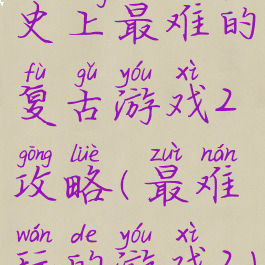 史上最难的
fù gǔ yóu xì
复古游戏2
gōng lüè zuì nán
攻略(最难
wán de yóu xì
玩的游戏2)